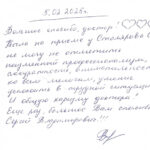 5.02.2026г.
Большое спасибо, доктор
После приема у Столярова
не могу не отметить
подлинный профессионализм,
аккуратность, внимательность
ко всем мелочам, умение
успокоить в трудной ситуации
и общую харизму доктора!
Еще раз, большое Вам спасибо
Сергей Владимирович!!!